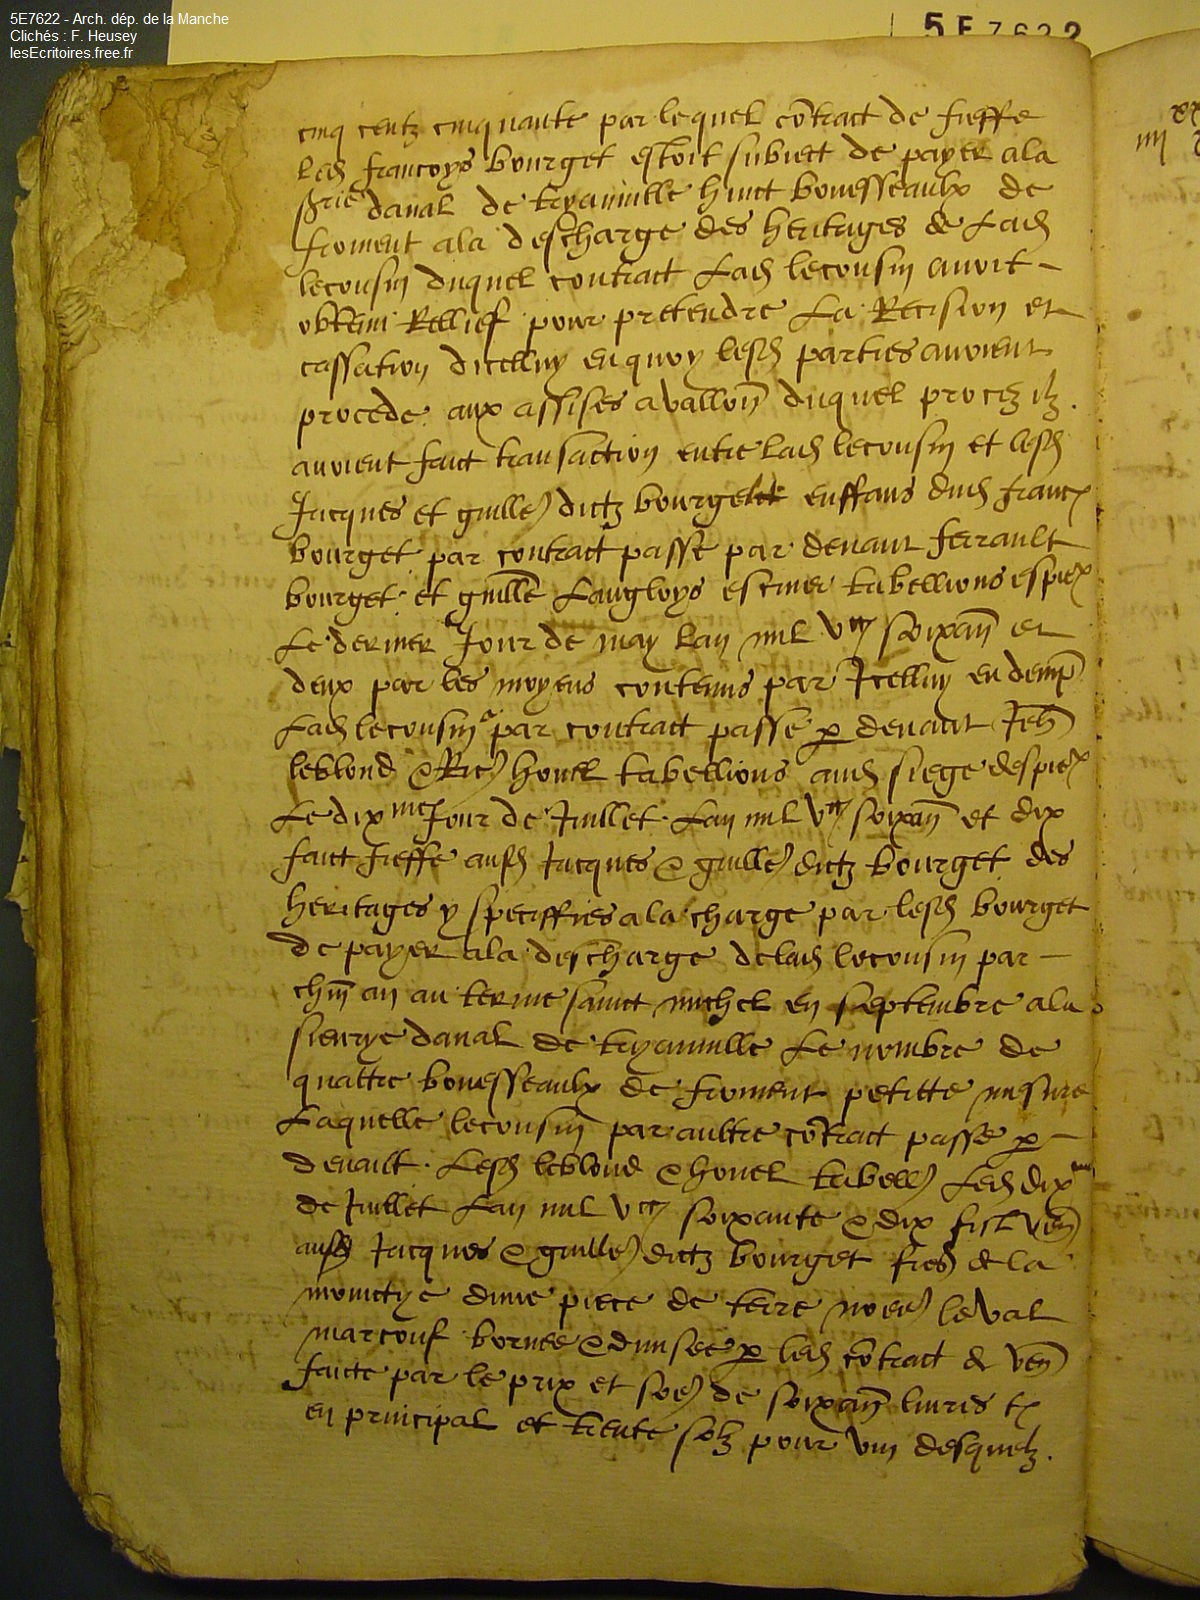 5E7622 - Arch. dép. de la Manche
Clichés : F. Heusey
lesEcritoires.free.fr
5 E 7622
cinq centz cinquante par lequel cõtract de fieffe
led françoys bourget estoit subiect de payer a la
sʳrie daual de tryauuille huict bouesseaulx de
froment a la descharge des heritages de lad
lecousin duquel contract lad lecousin auoit
obtenu rellief pour pretendre la recision et
cassation dicelluy en quoy lesd parties auoient
procede aux assises a vallon duquel procez ilz
auoient faict transaction entre lad lecousin et lesd
Jacques et guille dictz bourget enffans dud franc
bourget par contract passe par deuant ferrault
bourget et guille Langloys escuier tabellions espie
Le dernier Jour de may lan mil vcc soixan et
deux par les moyens contenus par Icelluy en demp
Lad lecousin par contract passe p deuant Jeh
leblond & Ric houel tabellions aud siege despie
Le dixme Jour de Juillet Lan mil vcc soixan et dix
faict fieffe ausd Jacques & guille dictz bourget des
heritages y speciffies a la charge par lesd bourget
de payer a la descharge de lad lecousin par
chun an au terme sainct michel en septembre a la
sieurye daual de tryauuille Le nombre de
quattre bouesseaulx de froment petitte mesure
Laquelle lecousin par aultre cõtract passe p
deuant Lesd leblond & houel tabell Led dixme
de Juillet Lan mil vcc soixante & dix fist ven
ausd Jacques & guille dictz bourget de la
moictye dune piece de terre le val
marcouf bornee & diuisee p led cõtract de ven
faicte par le prix et so de soixan liures t
en principal et trente solz pour vin desquelz